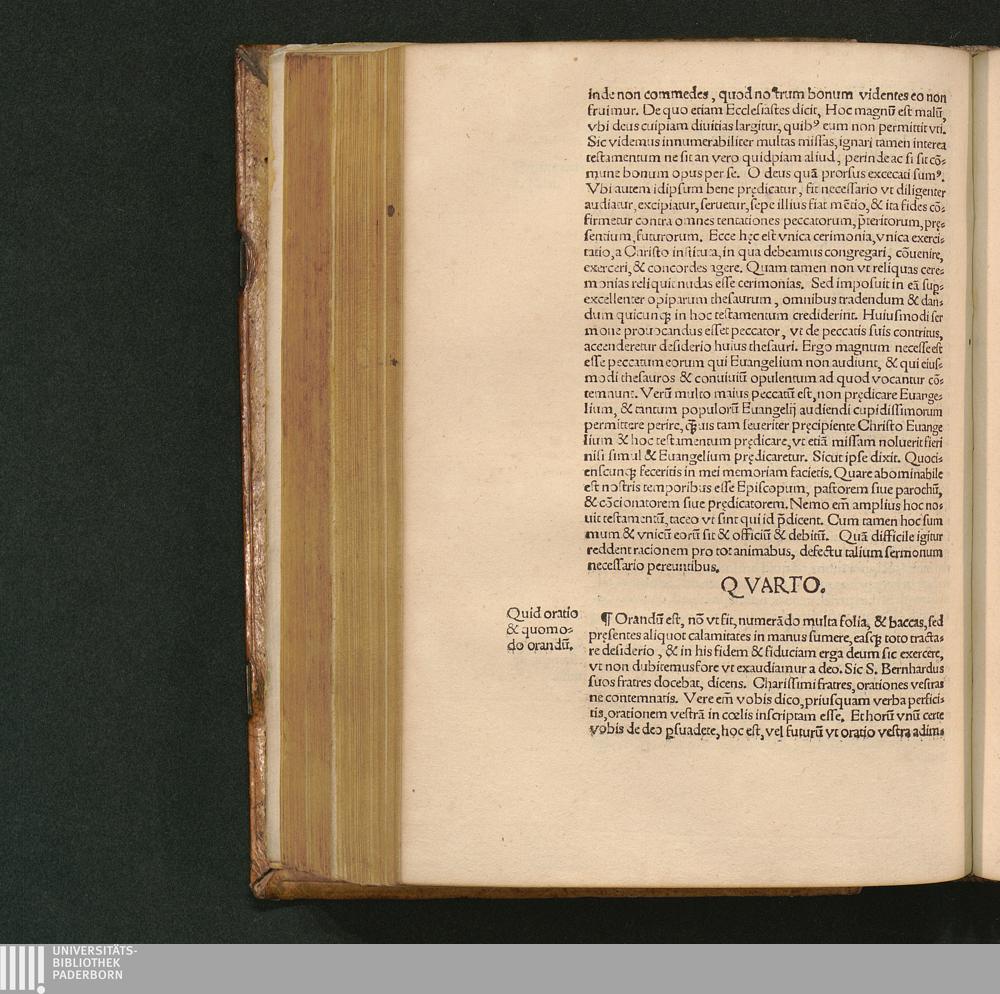 inde non commedes, quod nostrum bonum videntes eo non
fruimur. De quo etiam Ecclesiastes dicit, Hoc magnū est malū,
vbi deus cuipiam diuitias largitur, quibꝰ eum non permittit vti.
Sic videmus innumerabiliter multas missas, ignari tamen interea
testamentum ne sit an vero quidpiam aliud, perinde ac si sit cō⸗
mune bonum opus per se. O deus quā prorsus excecati sumꝰ.
Vbi autem idipsum bene prędicatur, fit necessario vt diligenter
audiatur, excipiatur, seruetur, sepe illius fiat mētio, & ita fides cō⸗
firmetur contra omnes tentationes peccatorum, p̄teritorum, prę⸗
sentium, futurorum. Ecce hęc est vnica cerimonia, vnica exerci⸗
tatio, a Christo instituta, in qua debeamus congregari, cōuenire,
exerceri, & concordes agere. Quam tamen non vt reliquas cere⸗
monias reliquit nudas esse cerimonias. Sed imposuit in eā sup⸗
excellenter opiparum thesaurum, omnibus tradendum & dan⸗
dum quicunqꝫ in hoc testamentum crediderint. Huiusmodi ser
mone prouocandus esset peccator, vt de peccatis suis contritus,
accenderetur desiderio huius thesauri. Ergo magnum necesse est
esse peccatum eorum qui Euangelium non audiunt, & qui eius⸗
modi thesauros & conuiuiū opulentum ad quod vocantur cō⸗
temnunt. Verū multo maius peccatū est, non prędicare Euange⸗
lium, & tantum populorū Euangelij audiendi cupidissimorum
permittere perire, qꝫuis tam seueriter pręcipiente Christo Euange
lium & hoc testamentum prędicare, vt etiā missam noluerit fieri
nisi simul & Euangelium prędicaretur. Sicut ipse dixit. Quoci⸗
enscunqꝫ feceritis in mei memoriam facietis. Quare abominabile
est nostris temporibus esse Episcopum, pastorem siue parochū,
& cōcionatorem siue prędicatorem. Nemo em̄ amplius hoc no⸗
uit testamentū, taceo vt sint qui id p̄dicent. Cum tamen hoc sum
mum & vnicū eorū sit & officiū & debitū. Quā difficile igitur
reddent racionem pro tot animabus, defectu talium sermonum
necessario pereuntibus.
QVARTO.
Quid oratio
& quomo⸗
do orandū.
¶ Orandū est, nō vt fit, numerādo multa folia, & baccas, sed
pręsentes aliquot calamitates in manus sumere, easqꝫ toto tracta⸗
re desiderio, & in his fidem & fiduciam erga deum sic exercere,
vt non dubitemus fore vt exaudiamur a deo. Sic S. Bernhardus
suos fratres docebat, dicens. Charissimi fratres, orationes vestras
ne contemnatis. Vere em̄ vobis dico, priusquam verba perfici⸗
tis, orationem vestrā in cœlis inscriptam esse. Et horū vnū certe
vobis de deo ꝑsuadete, hoc est, vel futurū vt oratio vestra adim⸗
UNIVERSITÄTS-
BIBLIOTHEK
PADERBORN